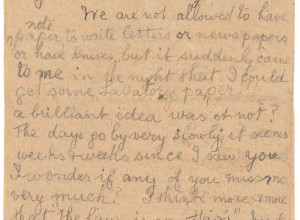 We are not allowed to have
note
paper to write letters or newspapers
or have knives, but it suddenly came
to me in the night that I could
get some lavatory paper
a brilliant idea was it not?
The days go by very slowly it seems
weeks & weeks since I saw you
I wonder if any of you miss me
very much? I think more & more
that the